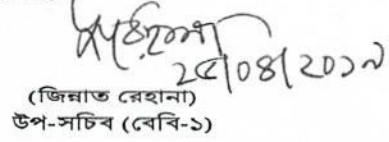 ২৫/০৪/২০১৯
(জিন্নাত রেহানা)
উপ-সচিব (বেবি-১)